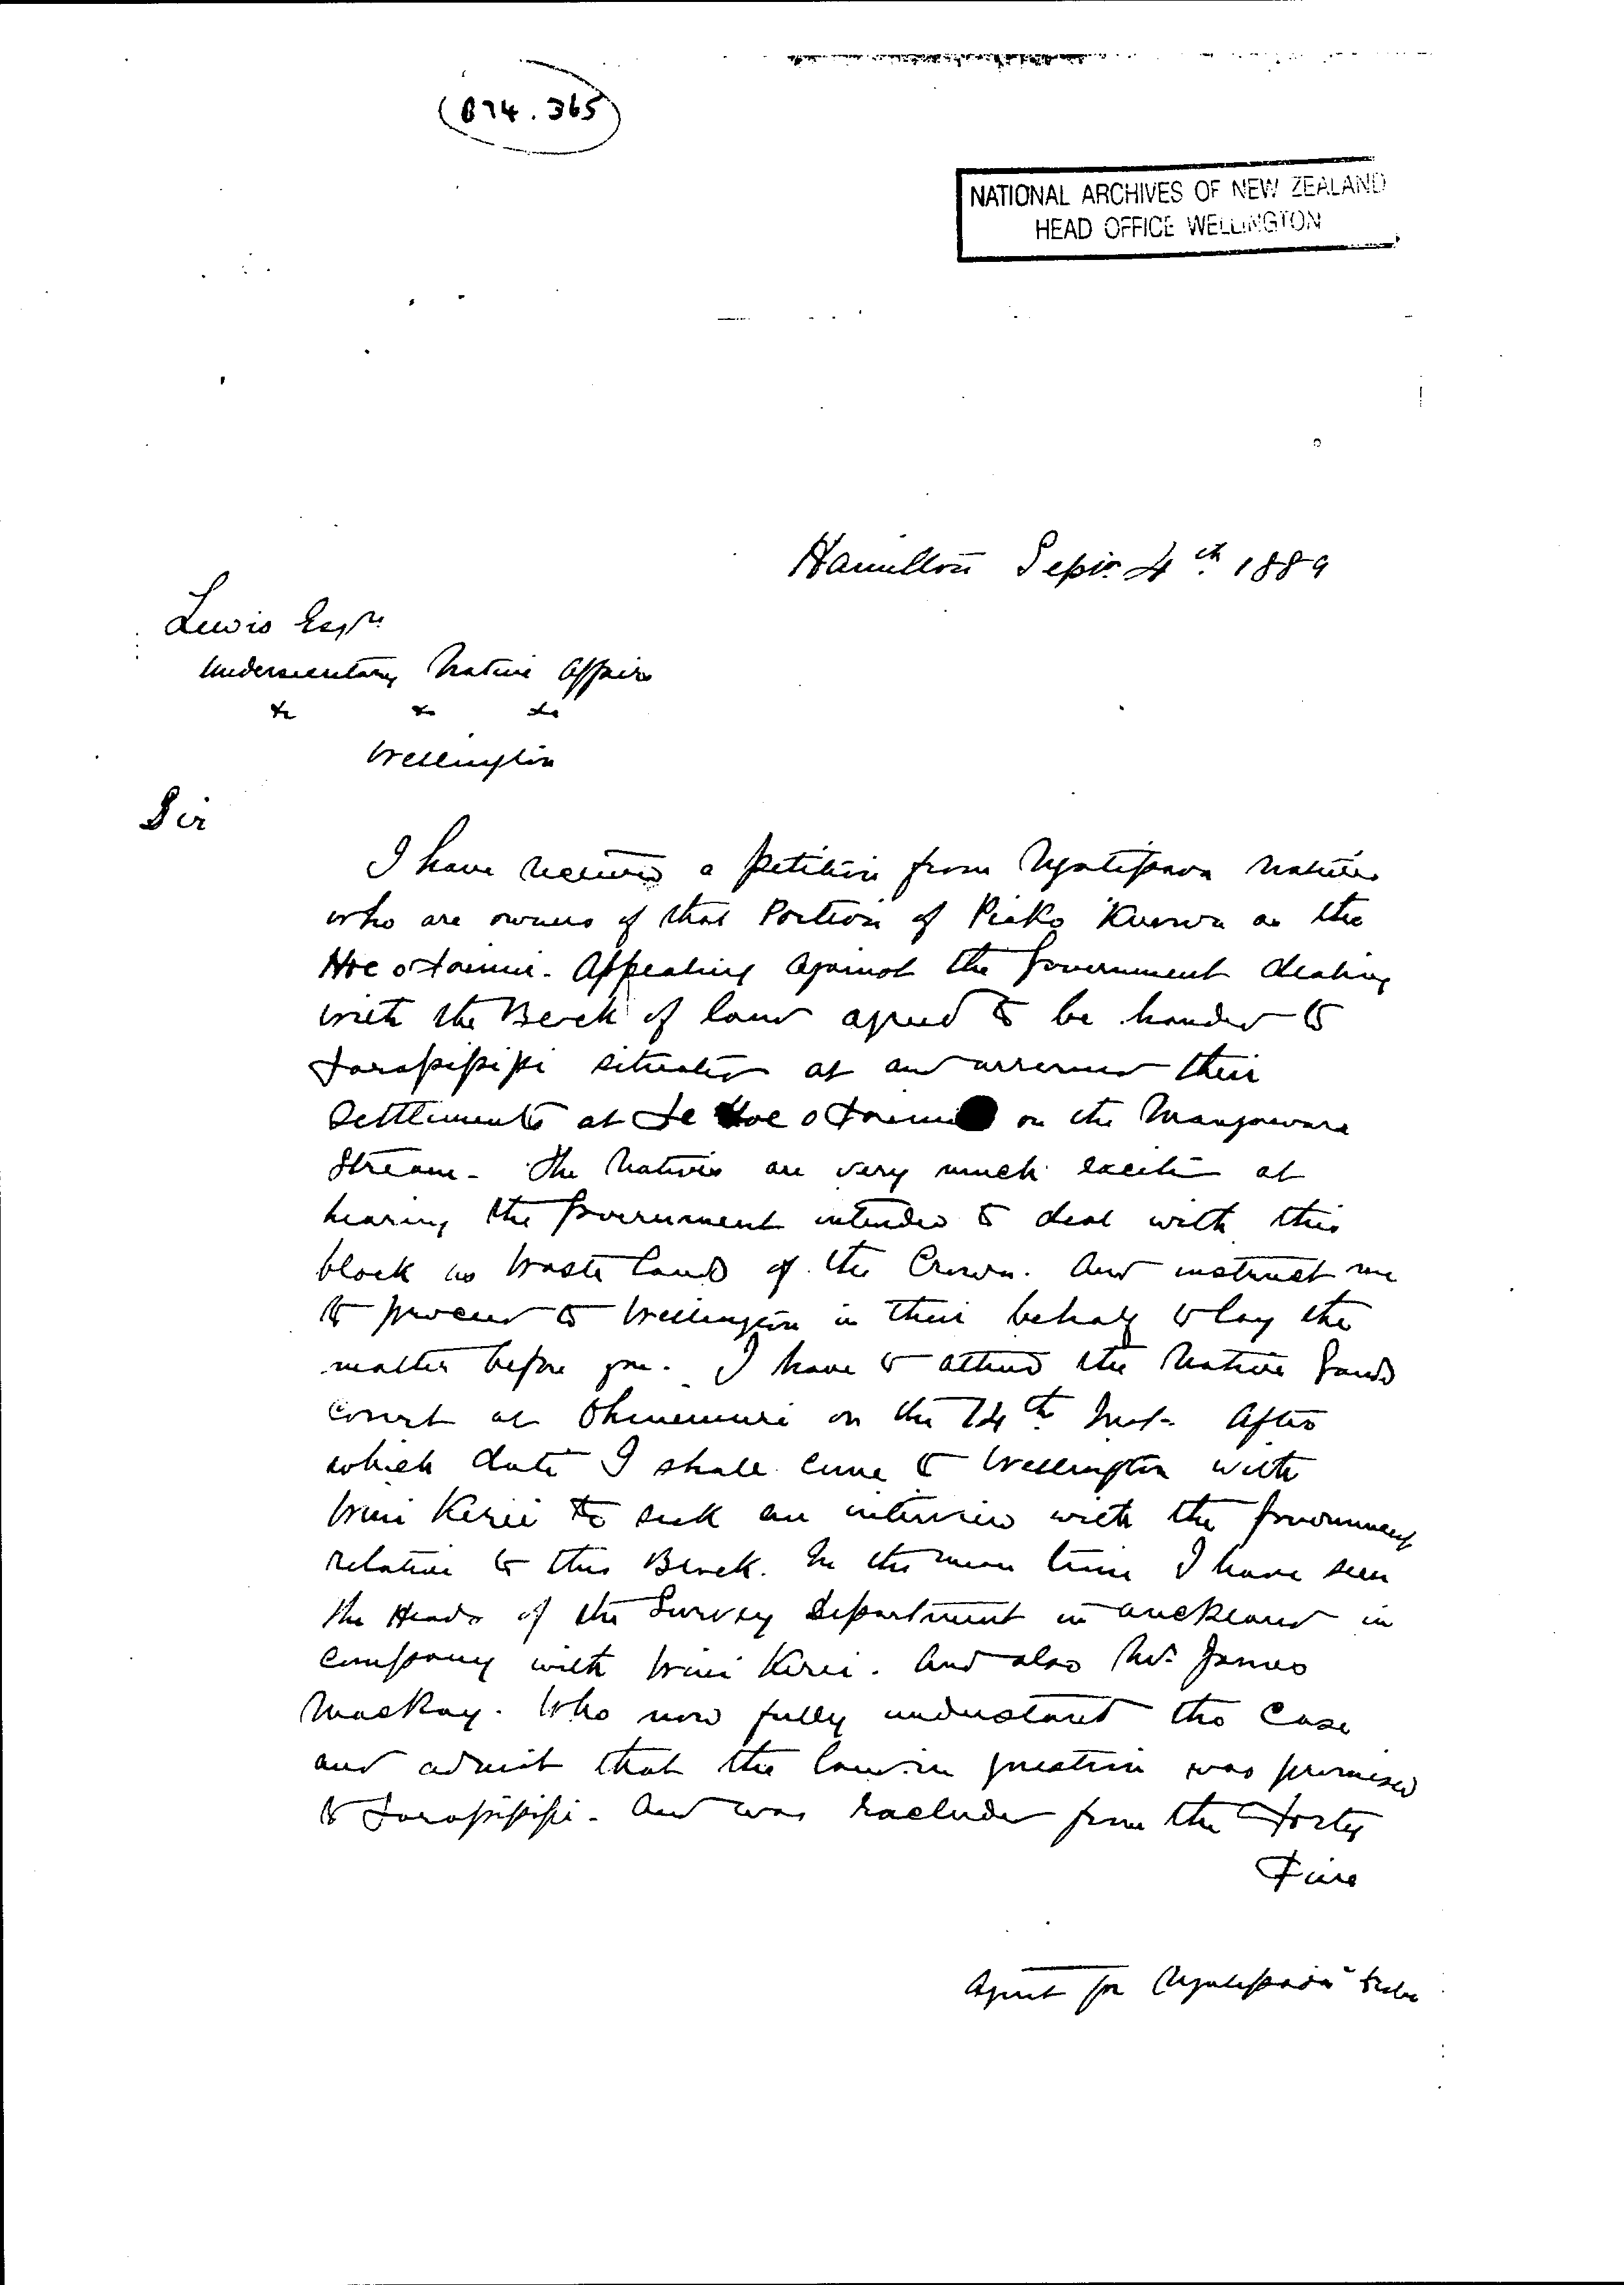 (874.365)
NATIONAL ARCHIVES OF NEW ZEALAND
HEAD OFFICE WELLINGTON
Hamilton Sept. 4th 1889
Lewis Esqre
Undersecretary Native Affairs
&c &c &c
Wellington
Sir
I have received a petition from Ngatipaoa Natives
who are owners of that Portion of Piako Known as the
Hoe o Tainui. Appealing against the Government dealing
with the Block of land agreed to be handed to
Tarapipipi situated at and arround their
Settlements at Te Hoe o Tainui on the Mangawara
Stream. The Natives are very much excited at
hearing the Government intended to deal with this
block as Waste lands of the Crown. And instruct me
to proceed to Wellington in their behalf to lay the
matter before you. I have to attend the Native Lands
Court at Ohinemuri on the 14th Inst. After
which date I shall come to Wellington with
Wini Kerei to seek an interview with the Government
relative to this Block. In the mean time I have seen
the Heads of the Survey Department in Auckland in
company with Wini Kerei. And also Mr. James
MacKay. Who now fully understand the Case
and admit that the land in question was promised
to Tarapipipi. And was excluded from the Forty
Five
Agent for Ngatipaoa Tribe